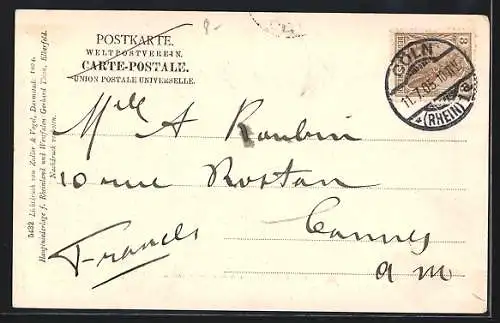 8-
POSTKARTE.
WELTPOSTVEREIN.
CARTE-POSTALE.
UNION POSTALE UNIVERSELLE.
3
CÖLN
11.7.05.
(RHEIN)
Mlle A
10 rue Rostan
Cannes
a m
5432 Lichtdruck von Zedler & Vogel, Darmstadt
Hauptniederlage f. Rheinland und Westfalen Gerhard Elberfeld.
Nachdruck verboten.